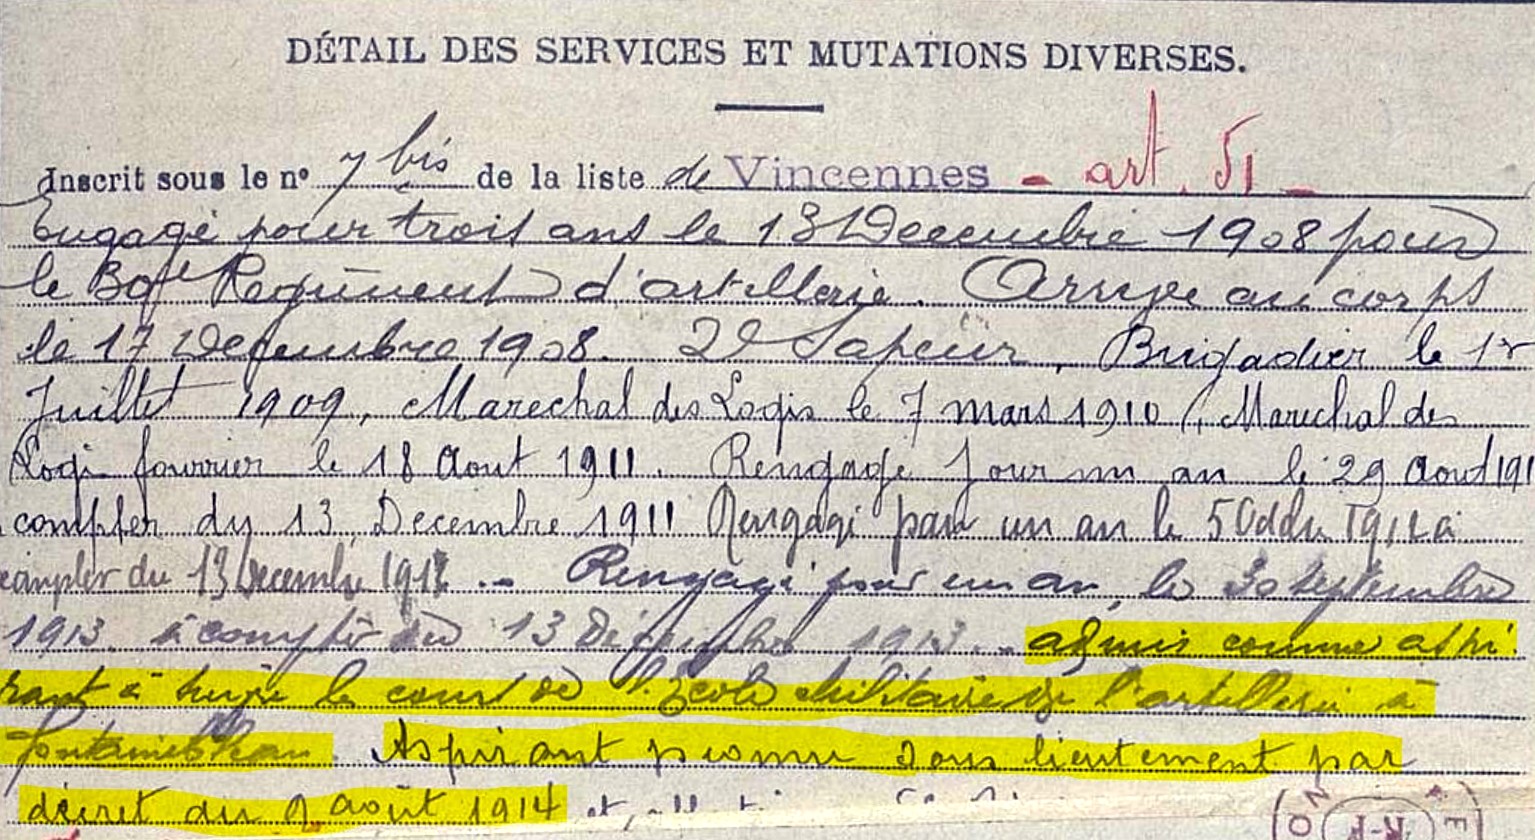 DÉTAIL DES SERVICES ET MUTATIONS DIVERSES.
Inscrit sous le nº 7 bis de la liste de Vincennes - art. 51 -
Engagé pour trois ans le 13 Decembre 1908 pour
le Régiment d'artillerie. Arrivé au corps
le 17 Decembre 1908. 2e Sapeur, Brigadier le 1er
Juillet 1909, Marechal des Logis le 7 mars 1910, Marechal des
Logis fourrier le 18 Aout 1911. Rengagé pour un an le 29 Aout 191
compter du 13 Decembre 1911 Rengagé pour un an le 5 1912 à
compter du 13 Decembre 1912. - Rengagé pour un an, le 30 Septembre
1913 à compter du 13 Décembre 1913. - admis comme aspi
rant à suivre le cours de l'École Militaire de l'artillerie à
Fontainebleau. Aspirant promu sous lieutement par
décret du 9 août 1914 et